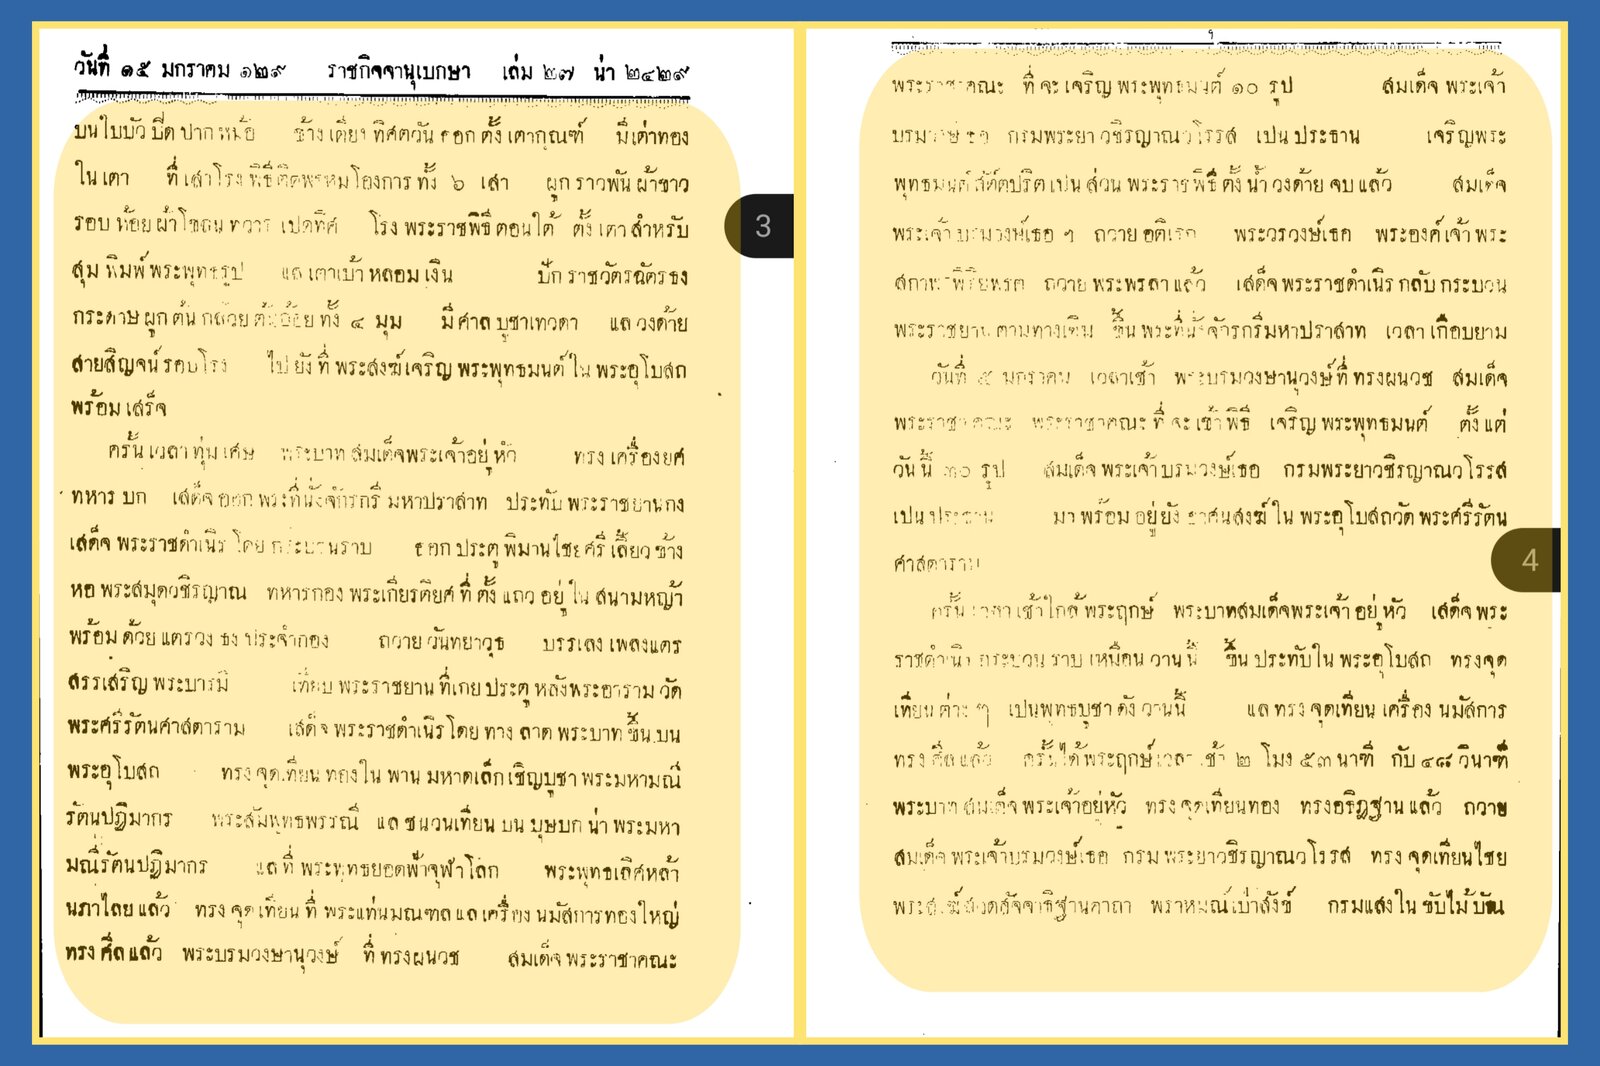 วันที่ ๑๕ มกราคม ๑๒๙ ราชกิจจานุเบกษา เล่ม ๒๗ น่า ๒๔๒๙
บนใบบัว ปิด ปาก หม้อ ข้าง เตียง ทิศตวัน ออก ตั้ง เตากุณฑ์ มีเต่าทอง
ใน เตา ที่ เสาโรง พิธีติดพรหมโองการ ทั้ง ๖ เสา ผูก ราวพัน ผ้าขาว
รอบ ห้อย ผ้าโขลน ทวาร เปดทิศ โรง พระราชพิธี ตอนใต้ ตั้ง เตา สำหรับ
สุม พิมพ์ พระพุทธรูป แล เตาเบ้า หลอม เงิน ปัก ราชวัตรฉัตรธง
กระดาษ ผูก ต้น กล้วย ต้นอ้อย ทั้ง ๔ มุม มี ศาล บูชาเทวดา แล วงด้าย
สายสิญจน์ รอบโรง ไป ยัง ที่ พระสงฆ์เจริญ พระพุทธมนต์ ใน พระอุโบสถ
พร้อม เสร็จ
ครั้น เวลา ทุ่ม เศษ พระบาท สมเด็จพระเจ้าอยู่ หัว ทรง เครื่องยศ
ทหาร บก เสด็จ ออก พระที่นั่งจักรกรี มหาปราสาท ประทับ พระราชยานกง
เสด็จ พระราชดำเนิร โดย กระบวนราบ ออก ประตู พิมานไชยศรี เลี้ยว ข้าง
หอ พระสมุดวชิรญาณ ทหารกอง พระเกียรติยศ ที่ ตั้ง แถว อยู่ ใน สนามหญ้า
พร้อม ด้วย แตรวง ธง ประจำกอง ถวาย วันทยาวุธ บรรเลง เพลงแตร
สรรเสริญ พระบารมี เทียบ พระราชยาน ที่เกย ประตู หลังพระอาราม วัด
พระศรีรัตนศาสดาราม เสด็จ พระราชดำเนิรโดย ทาง ลาด พระบาท ขึ้น บน
พระอุโบสถ ทรง จุดเทียน ทองใน พาน มหาดเล็ก เชิญบูชา พระมหามณี
รัตนปฏิมากร พระสัมพุทธพรรณี แล ชนวนเทียน บน บุษบก น่า พระมหา
มณีรัตนปฏิมากร แล ที่ พระพุทธยอดฟ้าจุฬาโลก พระพุทธเลิศหล้า
นภาไลย แล้ว ทรง จุด เทียน ที่ พระแท่นมณฑล แล เครื่อง นมัสการทองใหญ่
ทรง ศีล แล้ว พระบรมวงษานุวงษ์ ที่ ทรงผนวช สมเด็จ พระราชาคณะ
3
พระราชาคณะ ที่ จะ เจริญ พระพุทธมนต์ ๑๐ รูป สมเด็จ พระเจ้า
บรมวงษ์เธอ กรมพระยา วชิรญาณวโรรส เปน ประธาน เจริญพระ
พุทธมนต์ สัตตปริต เปน ส่วน พระราชพิธี ตั้ง น้ำ วงด้าย จบ แล้ว สมเด็จ
พระเจ้า บรมวงษ์เธอ ๆ ถวาย อติเรก พระวรวงษ์เธอ พระองค์ เจ้า พระ
สถาพรพิริยพรต ถวาย พระพรลา แล้ว เสด็จ พระราชดำเนิร กลับ กระบวน
พระราชยาน ตามทางเดิม ขึ้น พระที่นั่งจักรกรีมหาปราสาท เวลา เกือบยาม
วันที่ ๕ มกราคม เวลาเช้า พระบรมวงษานุวงษ์ที่ ทรงผนวช สมเด็จ
พระราชาคณะ พระราชาคณะ ที่ จะ เข้า พิธี เจริญ พระพุทธมนต์ ตั้ง แต่
วัน นี้ ๓๐ รูป สมเด็จ พระเจ้า บรมวงษ์เธอ กรมพระยาวชิรญาณวโรรส
เปน ประธาน มา พร้อม อยู่ ยัง อาศนสงฆ์ ใน พระอุโบสถวัด พระศรีรัตน
ศาสดาราม
ครั้น เวลา เช้า ใกล้ พระฤกษ์ พระบาทสมเด็จพระเจ้า อยู่ หัว เสด็จ พระ
ราชดำเนิร กระบวน ราบ เหมือน วาน นี้ ขึ้น ประทับใน พระอุโบสถ ทรงจุด
เทียน ต่าง ๆ เปนพุทธบูชา ดัง วานนี้ แล ทรง จุดเทียน เครื่อง นมัสการ
ทรง ศีล แล้ว ครั้นได้ พระฤกษ์ เวลา เช้า ๒ โมง ๕๓ นาฑี กับ ๔๘ วินาฑี
พระบาท สมเด็จ พระเจ้าอยู่หัว ทรง จุดเทียนทอง ทรงอธิฏฐาน แล้ว ถวาย
สมเด็จ พระเจ้าบรมวงษ์เธอ กรม พระยาวชิรญาณวโรรส ทรง จุดเทียนไชย
พระสงฆ์ สวดสัจจาธิฐานคาถา พราหมณ์ เป่าสังข์ กรมแสงใน ขับไม้ บัณ
4